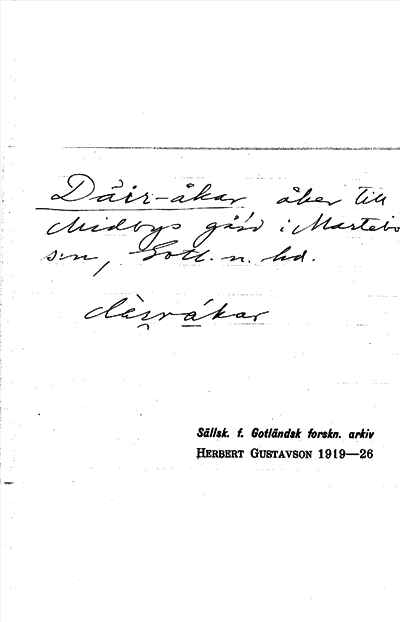 Däir-åkar, åker till
Midbys gård i Martebo
sn, Gotl. n. hd.
Sällsk. f. Gotländsk forskn. arkiv
HERBERT GUSTAVSON 1919—26